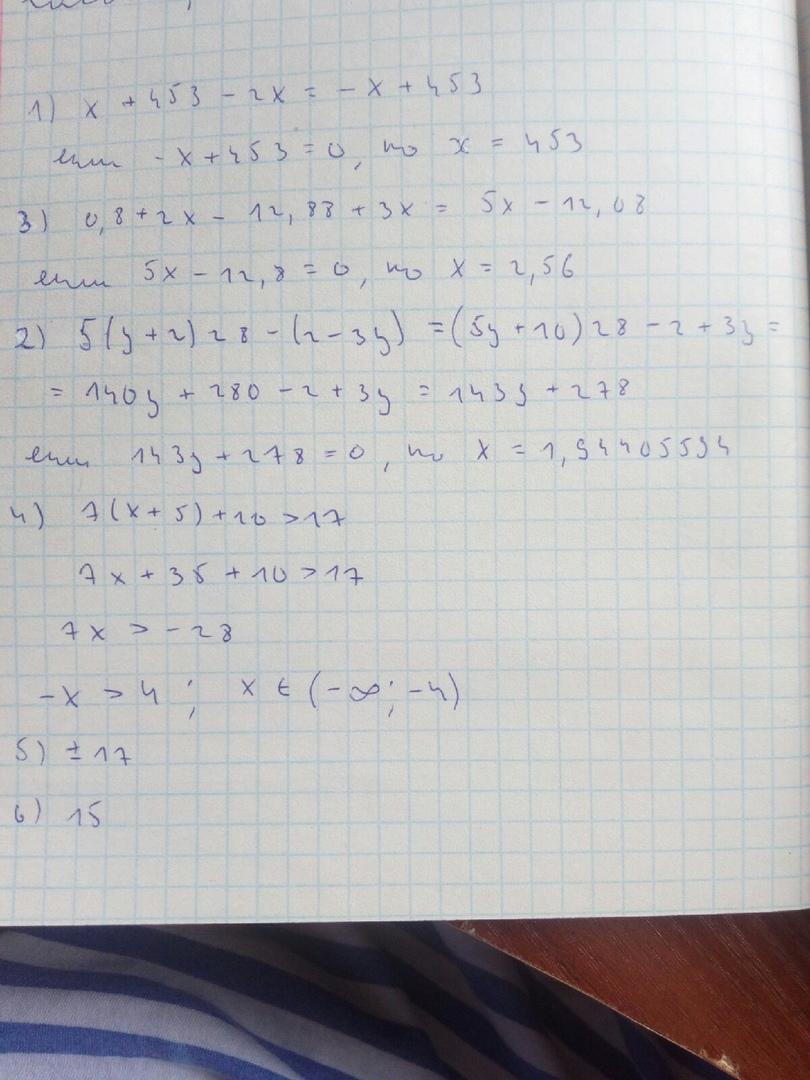 1) x + 453 - 2x = - x + 453
если - x + 453 = 0, то x = 453
3) 0,8 + 2x - 12,88 + 3x = 5x - 12,08
если 5x - 12,8 = 0, то x = 2,56
2) 5(y + 2) 28 - (2 - 3y) = (5y + 10) 28 - 2 + 3y =
= 140y + 280 - 2 + 3y = 143y + 278
если 143y + 278 = 0, то x = 1,94405594
4) 7(x + 5) + 10 > 17
7x + 35 + 10 > 17
7x > - 28
- x > 4 ; x ∈ (-∞; -4)
5) ± 17
6) 15